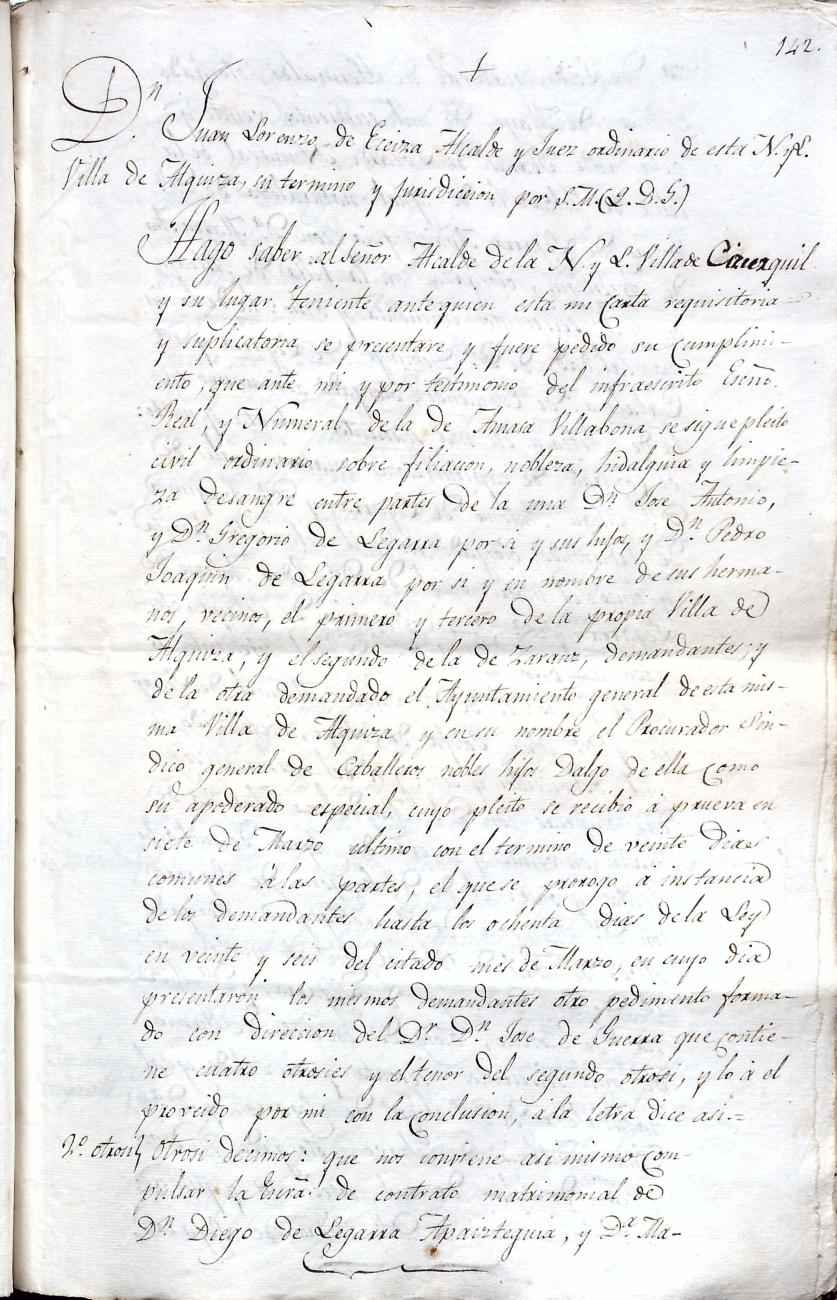 142.
+
Dn. Juan Lorenzo de Eceiza Alcalde y Juez ordinario de esta N. y L.
Villa de Alquiza, su termino y Jurisdiccion por S.M. (Q.D.G.)
Hago saber al Señor Alcalde de la N. y L. Villa de Cizurquil
y su lugar teniente ante quien esta mi Carta requisitoria
y suplicatoria se presentare y fuere pedido su Cumplimi-
ento, que ante mi y por testimonio del infraescrito Esno.
Real, y Numeral de la de Amasa Villabona se sigue pleito
civil ordinario sobre filiacion, nobleza, hidalguia y limpie-
za de sangre entre partes de la una Dn. Jose Antonio,
y Dn. Gregorio de Legarra por si y sus hijos, y Dn. Pedro
Joaquin de Legarra por si y en nombre de sus herma-
nos, vecinos, el primero y tercero de la propia Villa de
Alquiza, y el segundo de la de Zarauz, demandantes; y
de la otra demandado el Ayuntamiento general de esta mis-
ma Villa de Alquiza y en su nombre el Procurador Sin-
dico general de Caballeros nobles hijos Dalgo de ella Como
su apoderado especial, cuyo pleito se recibio á prueva en
siete de Marzo ultimo con el termino de veinte Dias
comunes á las partes, el que se prorogo á instancia
de los demandantes hasta los ochenta dias de la Ley
en veinte y seis del citado mes de Marzo, en cuyo dia
presentaron los mismos demandantes otro pedimento forma-
do con direccion del Dr. Dn. Jose de Guerra que contie-
ne cuatro otrosies y el tenor del segundo otrosi, y lo á el
proveido por mi con la Conclusion, á la letra dice asi.=
2º. otrosi} Otrosi decimos: que nos conviene asi mismo Com-
pulsar la Escra. de contrato matrimonial de
Dn. Diego de Legarra Apaizteguia, y Da. Ma-